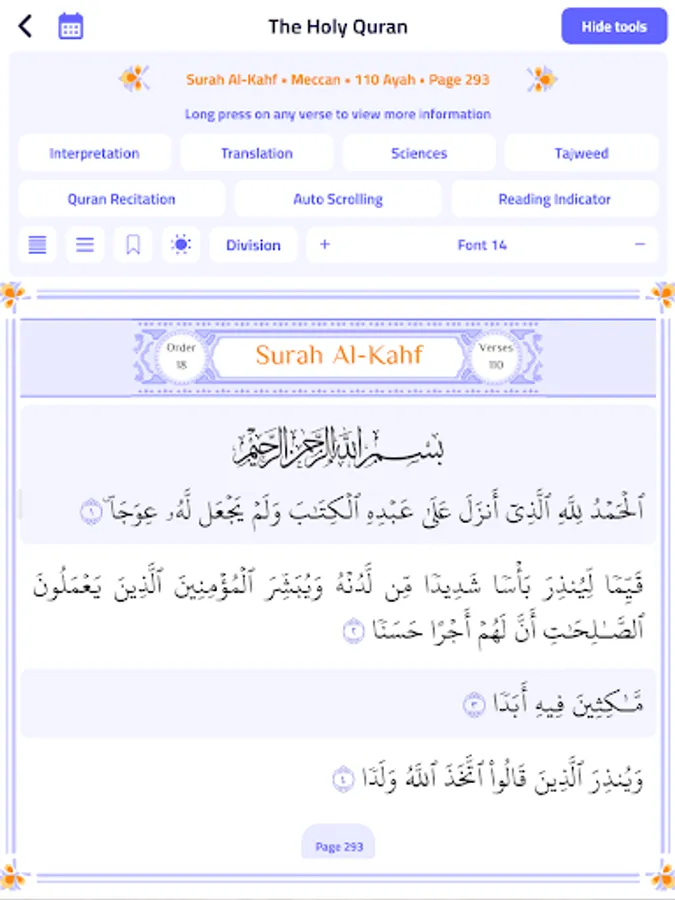 The Holy Quran
Hide tools
Surah Al-Kahf • Meccan • 110 Ayah • Page 293
Long press on any verse to view more information
Interpretation Translation Sciences Tajweed
Quran Recitation Auto Scrolling Reading Indicator
Division + Font 14 −
Order 18 Surah Al-Kahf Verses 110
بِسْمِ اللَّهِ الرَّحْمَٰنِ الرَّحِيمِ
ٱلْحَمْدُ لِلَّهِ ٱلَّذِىٓ أَنزَلَ عَلَىٰ عَبْدِهِ ٱلْكِتَٰبَ وَلَمْ يَجْعَل لَّهُۥ عِوَجَاۜ ١
قَيِّمًا لِّيُنذِرَ بَأْسًا شَدِيدًا مِّن لَّدُنْهُ وَيُبَشِّرَ ٱلْمُؤْمِنِينَ ٱلَّذِينَ يَعْمَلُونَ
ٱلصَّٰلِحَٰتِ أَنَّ لَهُمْ أَجْرًا حَسَنًا ٢
مَّٰكِثِينَ فِيهِ أَبَدًا ٣
وَيُنذِرَ ٱلَّذِينَ قَالُوا۟ ٱتَّخَذَ ٱللَّهُ وَلَدًا ٤
Page 293